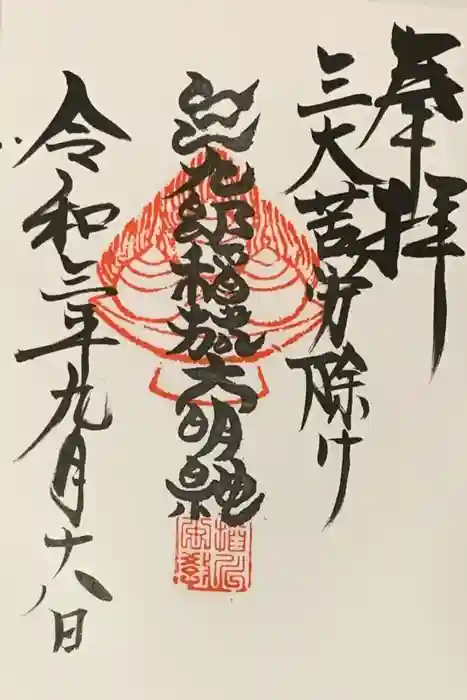 奉拝
三大苦労除け
九郎稲荷大明神
令和三年九月十八日